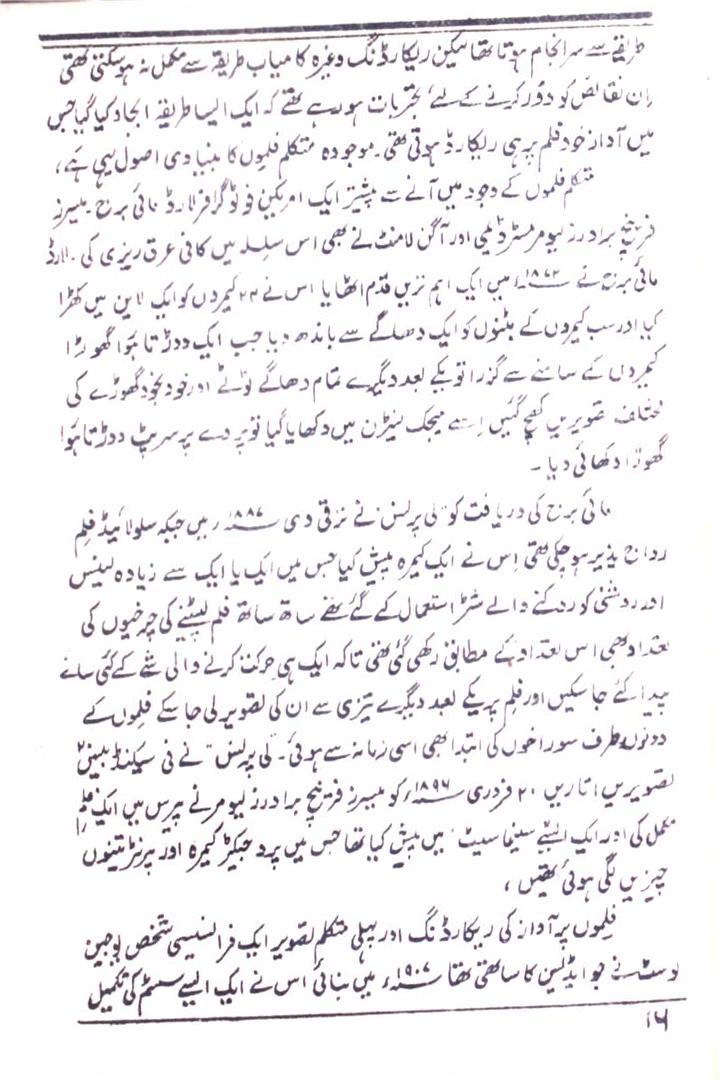 طریقے سے سرانجام ہوتا تھا لیکن ریکارڈنگ وغیرہ کامیاب طریقہ سے مکمل نہ ہوسکتی تھی
ان نقائص کو دُور کرنے کے لئے تجربات ہورہے تھے کہ ایک ایسا طریقہ ایجاد کیا گیا جس
میں آواز خود فلم پر ہی ریکارڈ ہوتی تھی۔ موجودہ متکلم فلموں کا بنیادی اصول یہی ہے،
متکلم فلموں کے وجود میں آنے سے پیشتر ایک امریکن فوٹوگرافر لارڈ مائی برج۔ میسرز
فرنچ برادرز لیومر مسٹر ڈیلی اور آگن لامنٹ نے بھی اس سلسلہ میں کافی عرق ریزی کی۔ لارڈ
مائی برج نے ۱۸۷۲ء میں ایک اہم ترین قدم اٹھایا اس نے ۲۴ کیمروں کو ایک لاین میں کھڑا
کیا اور سب کیمروں کے بٹنوں کو ایک دھاگے سے باندھ دیا جب ایک دوڑتا ہوا گھوڑا
کیمروں کے سامنے سے گزرا تو یکے بعد دیگرے تمام دھاگے ٹوٹے اور خودبخود گھوڑے کی
مختلف تصویریں کھچ گئیں اِسے میجک لینٹرن میں دکھایا گیا تو پردے پر سرپٹ دوڑتا ہوا
گھوڑا دکھائی دیا۔
مائی برج کی دریافت کو "لی پرنس" نے ترقی دی ۱۸۸۷ء میں جبکہ سلولائیڈ فلم
رواج پذیر ہوچکی تھی اِس نے ایک کیمرہ پیش کیا جس میں ایک یا ایک سے زیادہ لینس
اور روشنی کو روکنے والے شٹر استعمال کئے گئے تھے ساتھ ساتھ فلم لپیٹنے کی چرخیوں کی
تعداد بھی اس تعداد کے مطابق رکھی گئی تھی تاکہ ایک ہی حرکت کرنے والی شے کے کئی سائے
پیدا کئے جاسکیں اور فلم پر یکے بعد دیگرے تیزی سے ان کی تصویر لی جاسکے فلموں کے
دونوں طرف سوراخوں کی ابتدا بھی اسی زمانہ سے ہوئی۔ "لی پرنس" نے فی سیکنڈ بیس
تصویریں اتاریں ۲۰ فروری ۱۸۹۶ء کو میسرز فرنچ برادرز لیومر نے پیرس میں ایک فلم
مکمل کی اور ایک ایسے سنیما سیٹ میں پیش کیا تھا جس میں پروجیکٹر کیمرہ اور پرنٹر تینوں
چیزیں لگی ہوئی تھیں،
فلموں پر آواز کی ریکارڈنگ اور پہلی متکلم تصویر ایک فرانسیسی شخص یوجین
لوسٹ نے جو ایڈیسن کا ساتھی تھا ۱۹۰۷ء میں بنائی اس نے ایک ایسے سسٹم کی تکمیل
۱۶